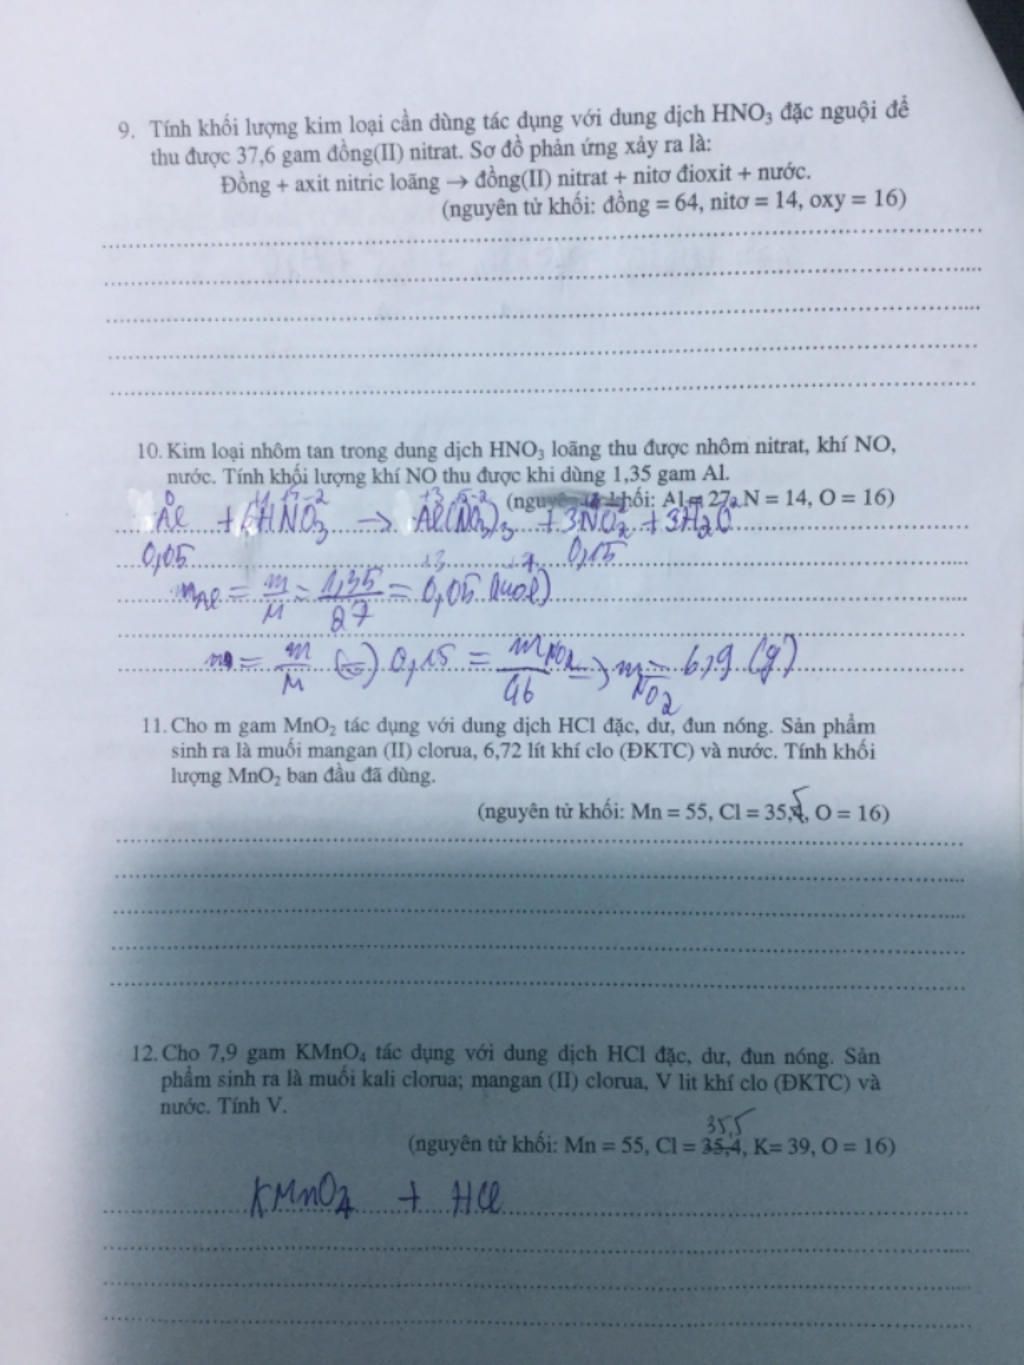 9. Tính khối lượng kim loại cần dùng tác dụng với dung dịch HNO₃ đặc nguội để
thu được 37,6 gam đồng(II) nitrat. Sơ đồ phản ứng xảy ra là:
Đồng + axit nitric loãng → đồng(II) nitrat + nitơ đioxit + nước.
(nguyên tử khối: đồng = 64, nitơ = 14, oxy = 16)
10. Kim loại nhôm tan trong dung dịch HNO₃ loãng thu được nhôm nitrat, khí NO,
nước. Tính khối lượng khí NO thu được khi dùng 1,35 gam Al.
(nguyên tử khối: Al = 27, N = 14, O = 16)
0 +1 +5 -2 +3 +5 -2
Al + 6HNO₃ → Al(NO₃)₃ + 3NO₂ + 3H₂O
0,05 0,15
nAl = m/M = 1,35/27 = 0,05 (mol)
n = m/M (=) 0,15 = mNO₂/46 => mNO₂ = 6,9 (g)
11. Cho m gam MnO₂ tác dụng với dung dịch HCl đặc, dư, đun nóng. Sản phẩm
sinh ra là muối mangan (II) clorua, 6,72 lít khí clo (ĐKTC) và nước. Tính khối
lượng MnO₂ ban đầu đã dùng.
5
(nguyên tử khối: Mn = 55, Cl = 35,4, O = 16)
12. Cho 7,9 gam KMnO₄ tác dụng với dung dịch HCl đặc, dư, đun nóng. Sản
phẩm sinh ra là muối kali clorua; mangan (II) clorua, V lit khí clo (ĐKTC) và
nước. Tính V.
35,5
(nguyên tử khối: Mn = 55, Cl = 35,4, K= 39, O = 16)
KMnO₄ + HCl